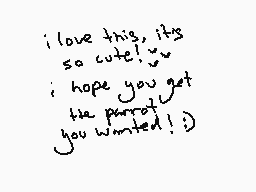 i love this, it's
so cute! ♥♥
i hope you get
the parrot
you wanted! :)